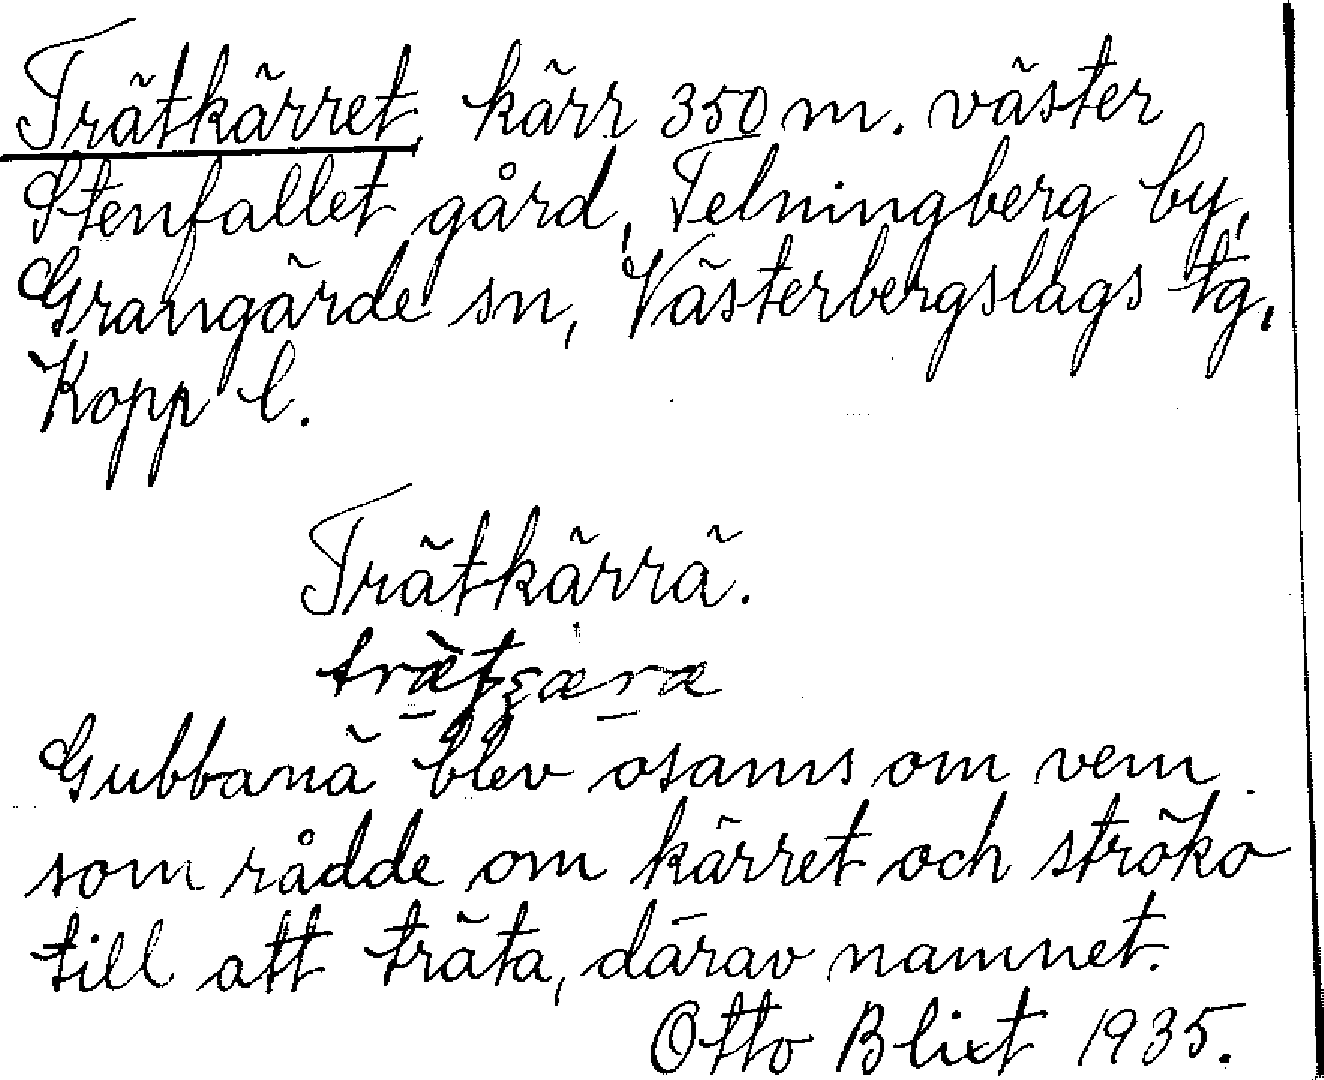 Trätkärret kärr 350 m. väster
Stenfallet gård, Telningberg by,
Grangärde sn, Västerbergslags tg,
Kopp l.
Trätkärrä.
Gubbanä blev osams om vem
som rådde om kärret och ströko
till att träta, därav namnet.
Otto Blixt 1935.